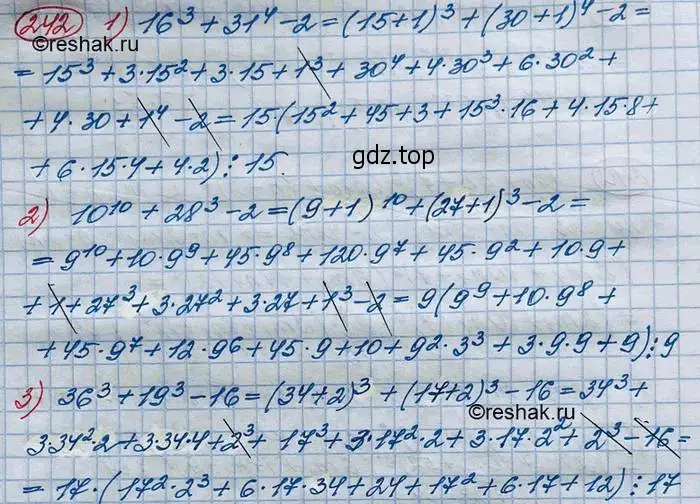 242 1) 16³ + 31⁴ - 2 = (15+1)³ + (30+1)⁴ - 2 =
©reshak.ru
= 15³ + 3·15² + 3·15 + 1³ + 30⁴ + 4·30³ + 6·30² +
+ 4·30 + 1⁴ - 2 = 15·(15² + 45 + 3 + 15³·16 + 4·15·8 +
+ 6·15·4 + 4·2) ⋮ 15.
gdz.top
2) 10¹⁰ + 28³ - 2 = (9+1)¹⁰ + (27+1)³ - 2 =
= 9¹⁰ + 10·9⁹ + 45·9⁸ + 120·9⁷ + 45·9² + 10·9 +
+ 1 + 27³ + 3·27² + 3·27 + 1³ - 2 = 9(9⁹ + 10·9⁸ +
+ 45·9⁷ + 12·9⁶ + 45·9 + 10 + 9²·3³ + 3·9·9 + 9) ⋮ 9
3) 36³ + 19³ - 16 = (34+2)³ + (17+2)³ - 16 = 34³ +
©reshak.ru
3·34²·2 + 3·34·4 + 2³ + 17³ + 3·17²·2 + 3·17·2² + 2³ - 16 =
= 17·(17²·2³ + 6·17·34 + 24 + 17² + 6·17 + 12) ⋮ 17